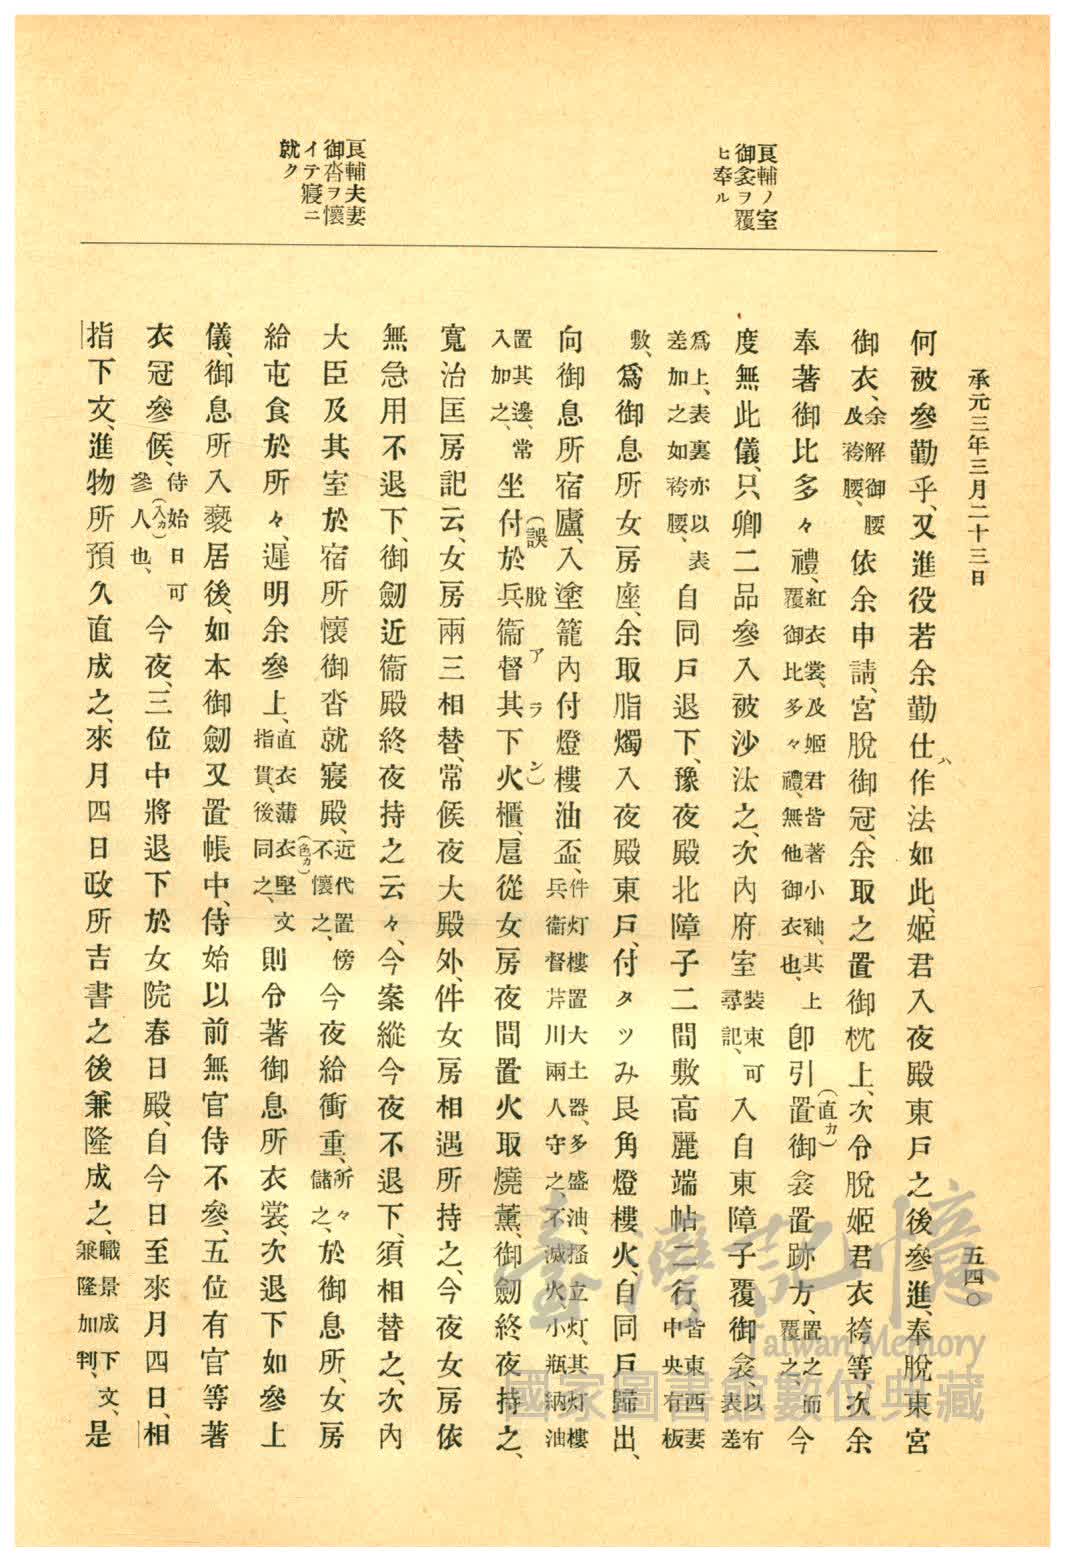 承元三年三月二十三日
五四〇
良輔ノ室
御衾ヲ覆
ヒ奉ル
良輔夫妻
御沓ヲ懷
イテ寢ニ
就ク
何被參勤乎、又進役若余勤仕ハ作法如此、姬君入夜殿東戸之後參進、奉脫東宮
御衣、余解御腰及袴腰、依余申請、宮脫御冠、余取之置御枕上、次令脫姬君衣袴等次余
奉著御比多々禮、紅衣裳、及姬君皆著小袖、其上覆御比多々禮、無他御衣也、卽引置(直カ)御衾置跡方、置之而覆之今
度無此儀、只卿二品參入被沙汰之、次內府室裝束可尋記、入自東障子覆御衾、以有表差
爲上、表裏亦以表差加之如袴腰、自同戸退下、豫夜殿北障子二間敷高麗端帖二行、皆東西妻中央有板
敷、爲御息所女房座、余取脂燭入夜殿東戸、付タツみ艮角燈樓火、自同戸歸出、
向御息所宿廬、入塗籠內付燈樓油盃、件灯樓置大土器、多盛油、搔立灯、其灯樓兵衞督芹川兩人守之、不滅火、小瓶納油
置其邊、常入加之、坐付於兵、衞督其、(誤脫アラン)下火櫃、扈從女房夜間置火取燒薰、御劒終夜持之、
寬治匡房記云、女房兩三相替、常候夜大殿外、件女房相遇所持之、今夜女房依
無急用不退下、御劒近衞殿終夜持之云々、今案縱今夜不退下、須相替之、次內
大臣及其室於宿所懷御沓就寢殿、近代置傍不懷之、今夜給衝重、所々儲之、於御息所、女房
給屯食於所々、遲明余參上、直衣薄衣(色カ)堅文指貫、後同之、則令著御息所衣裳、次退下如參上
儀、御息所入褻居後、如本御劒又置帳中、侍始以前無官侍不參、五位有官等著
衣冠參候、侍始日可參人(入カ)也、今夜、三位中將退下於女院春日殿、自今日至來月四日、相
指下文、進物所預久直成之、來月四日政所吉書之後兼隆成之、職景成下文、兼隆加判、是
臺灣記憶
Taiwan Memory
國家圖書館數位典藏